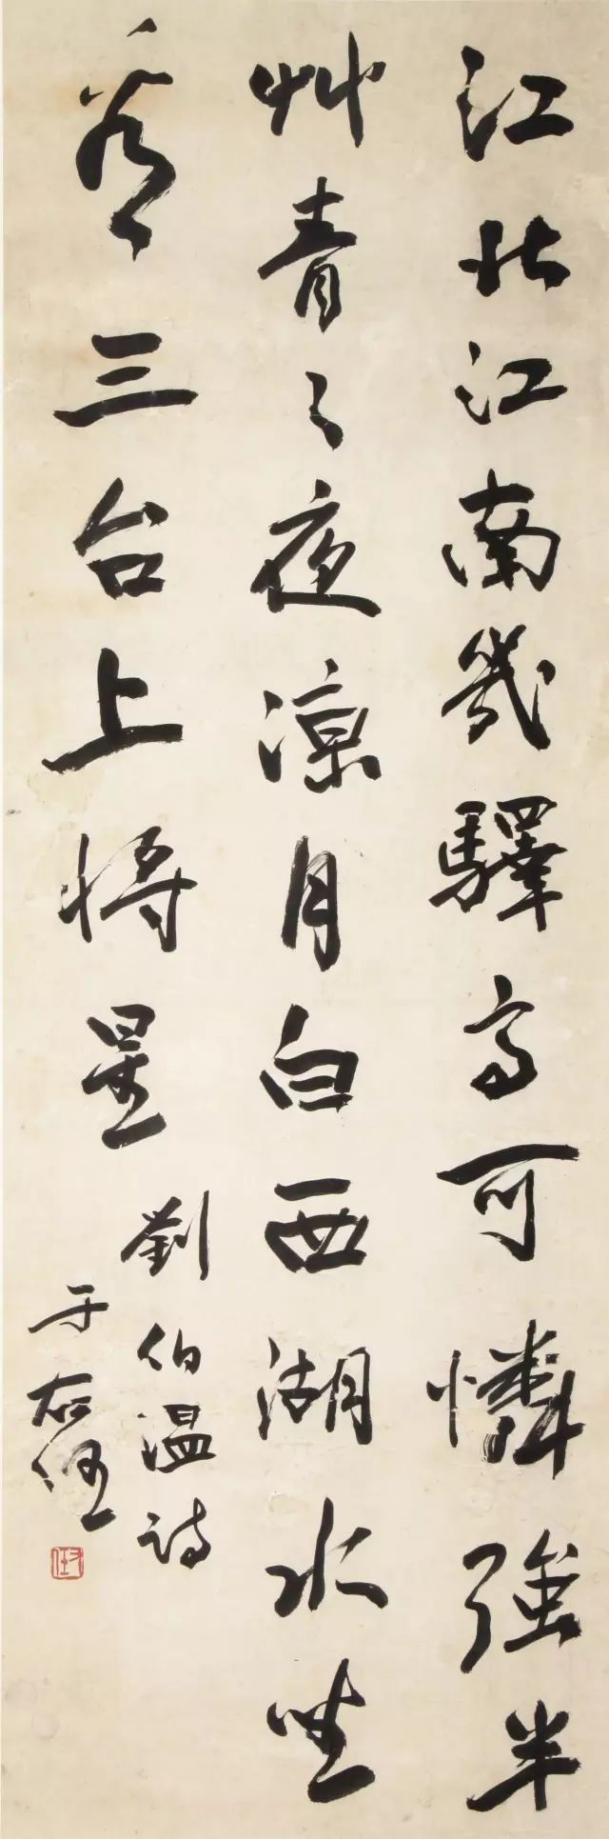 江北江南幾驛亭可憐強半
艸青々夜涼月白西湖水坐
看三台上將星
劉伯溫詩
于右任
右任